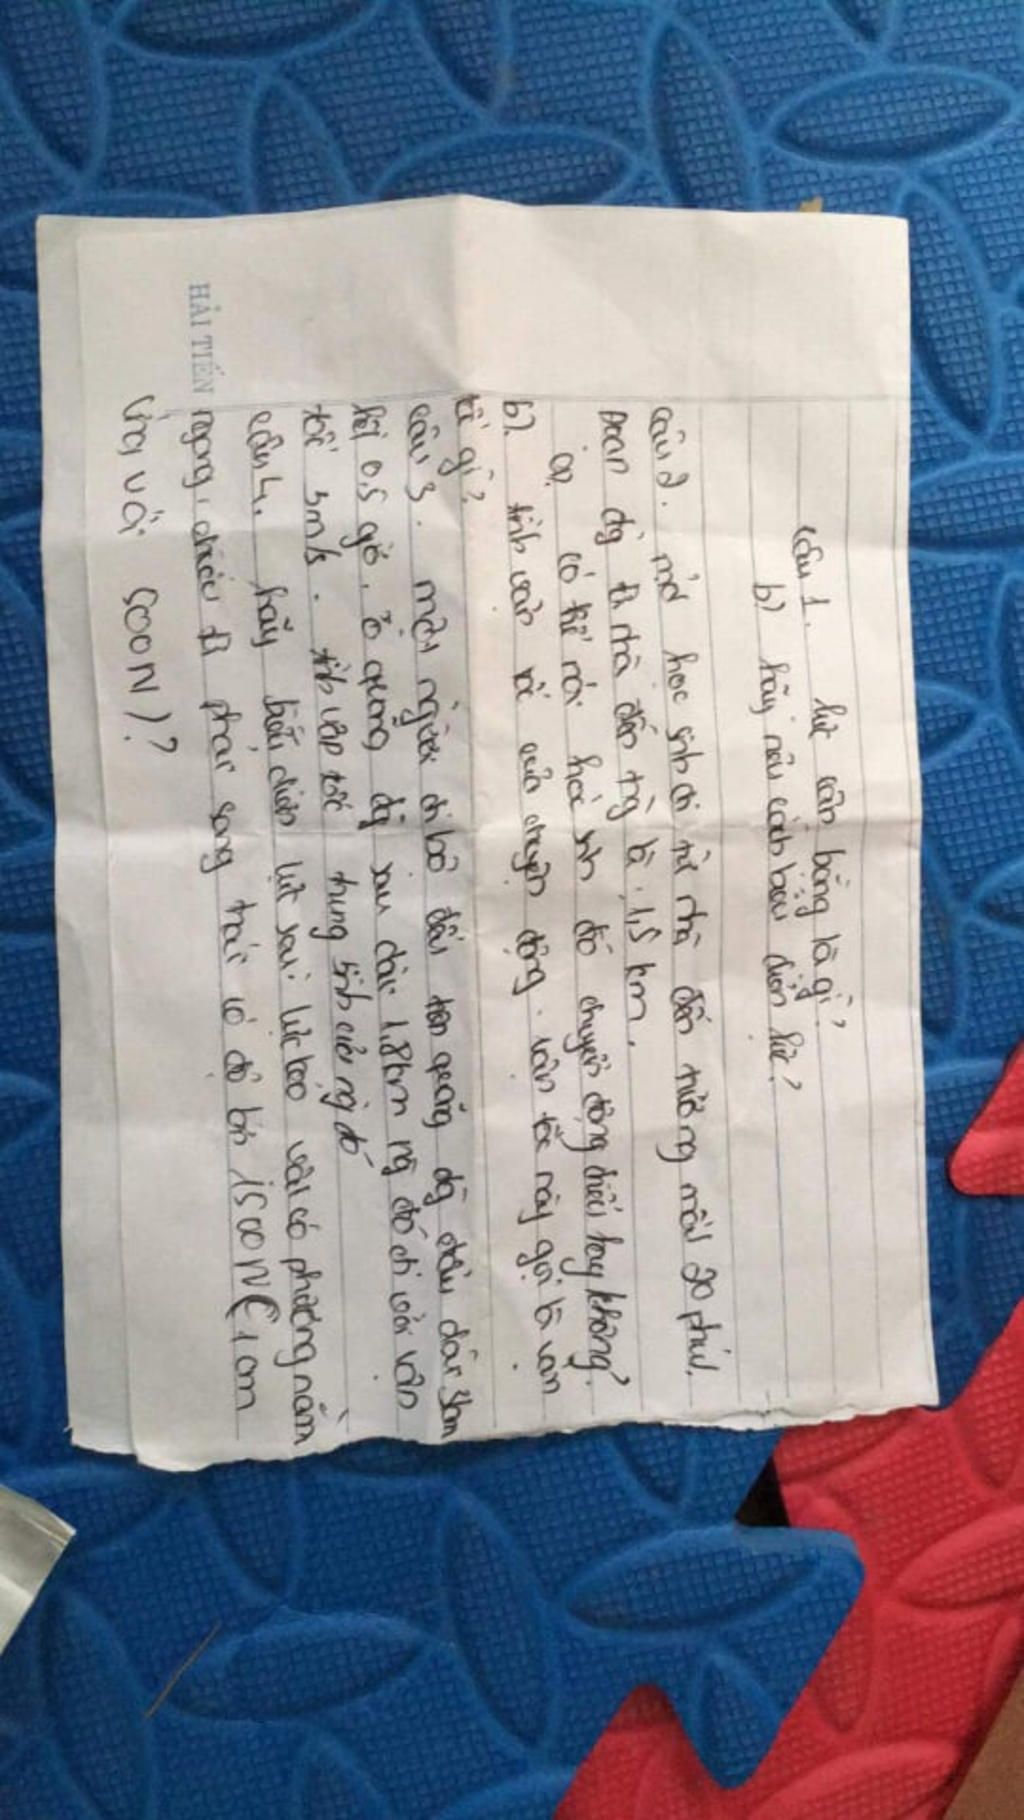 câu 1. lực cân bằng là gì?
b) hãy nêu cách biểu diễn lực?
câu 2. một học sinh đi từ nhà đến trường mất 20 phút.
Đoạn đg từ nhà đến trg là 1,5 km.
a, có thể nói học sinh đó chuyển động đều hay không?
b). tính vận tốc của chuyện động. vận tốc này gọi là vận
tốc gì?
câu 3. một người đi bộ đều trên quãng đg đầu dài 3km
hết 0,5 giờ. ở quãng đg sau dài 1,8km ng đó đi với vân
tốc 3m/s. tính vân tốc trung bình của ng đó
câu 4. hãy biểu diễn lực sau: lực kéo vật có phương nằm
HẢI TIẾN ngang, chiều từ phải sang trái có độ lớn 1500N (1cm
ứng với 500N)?